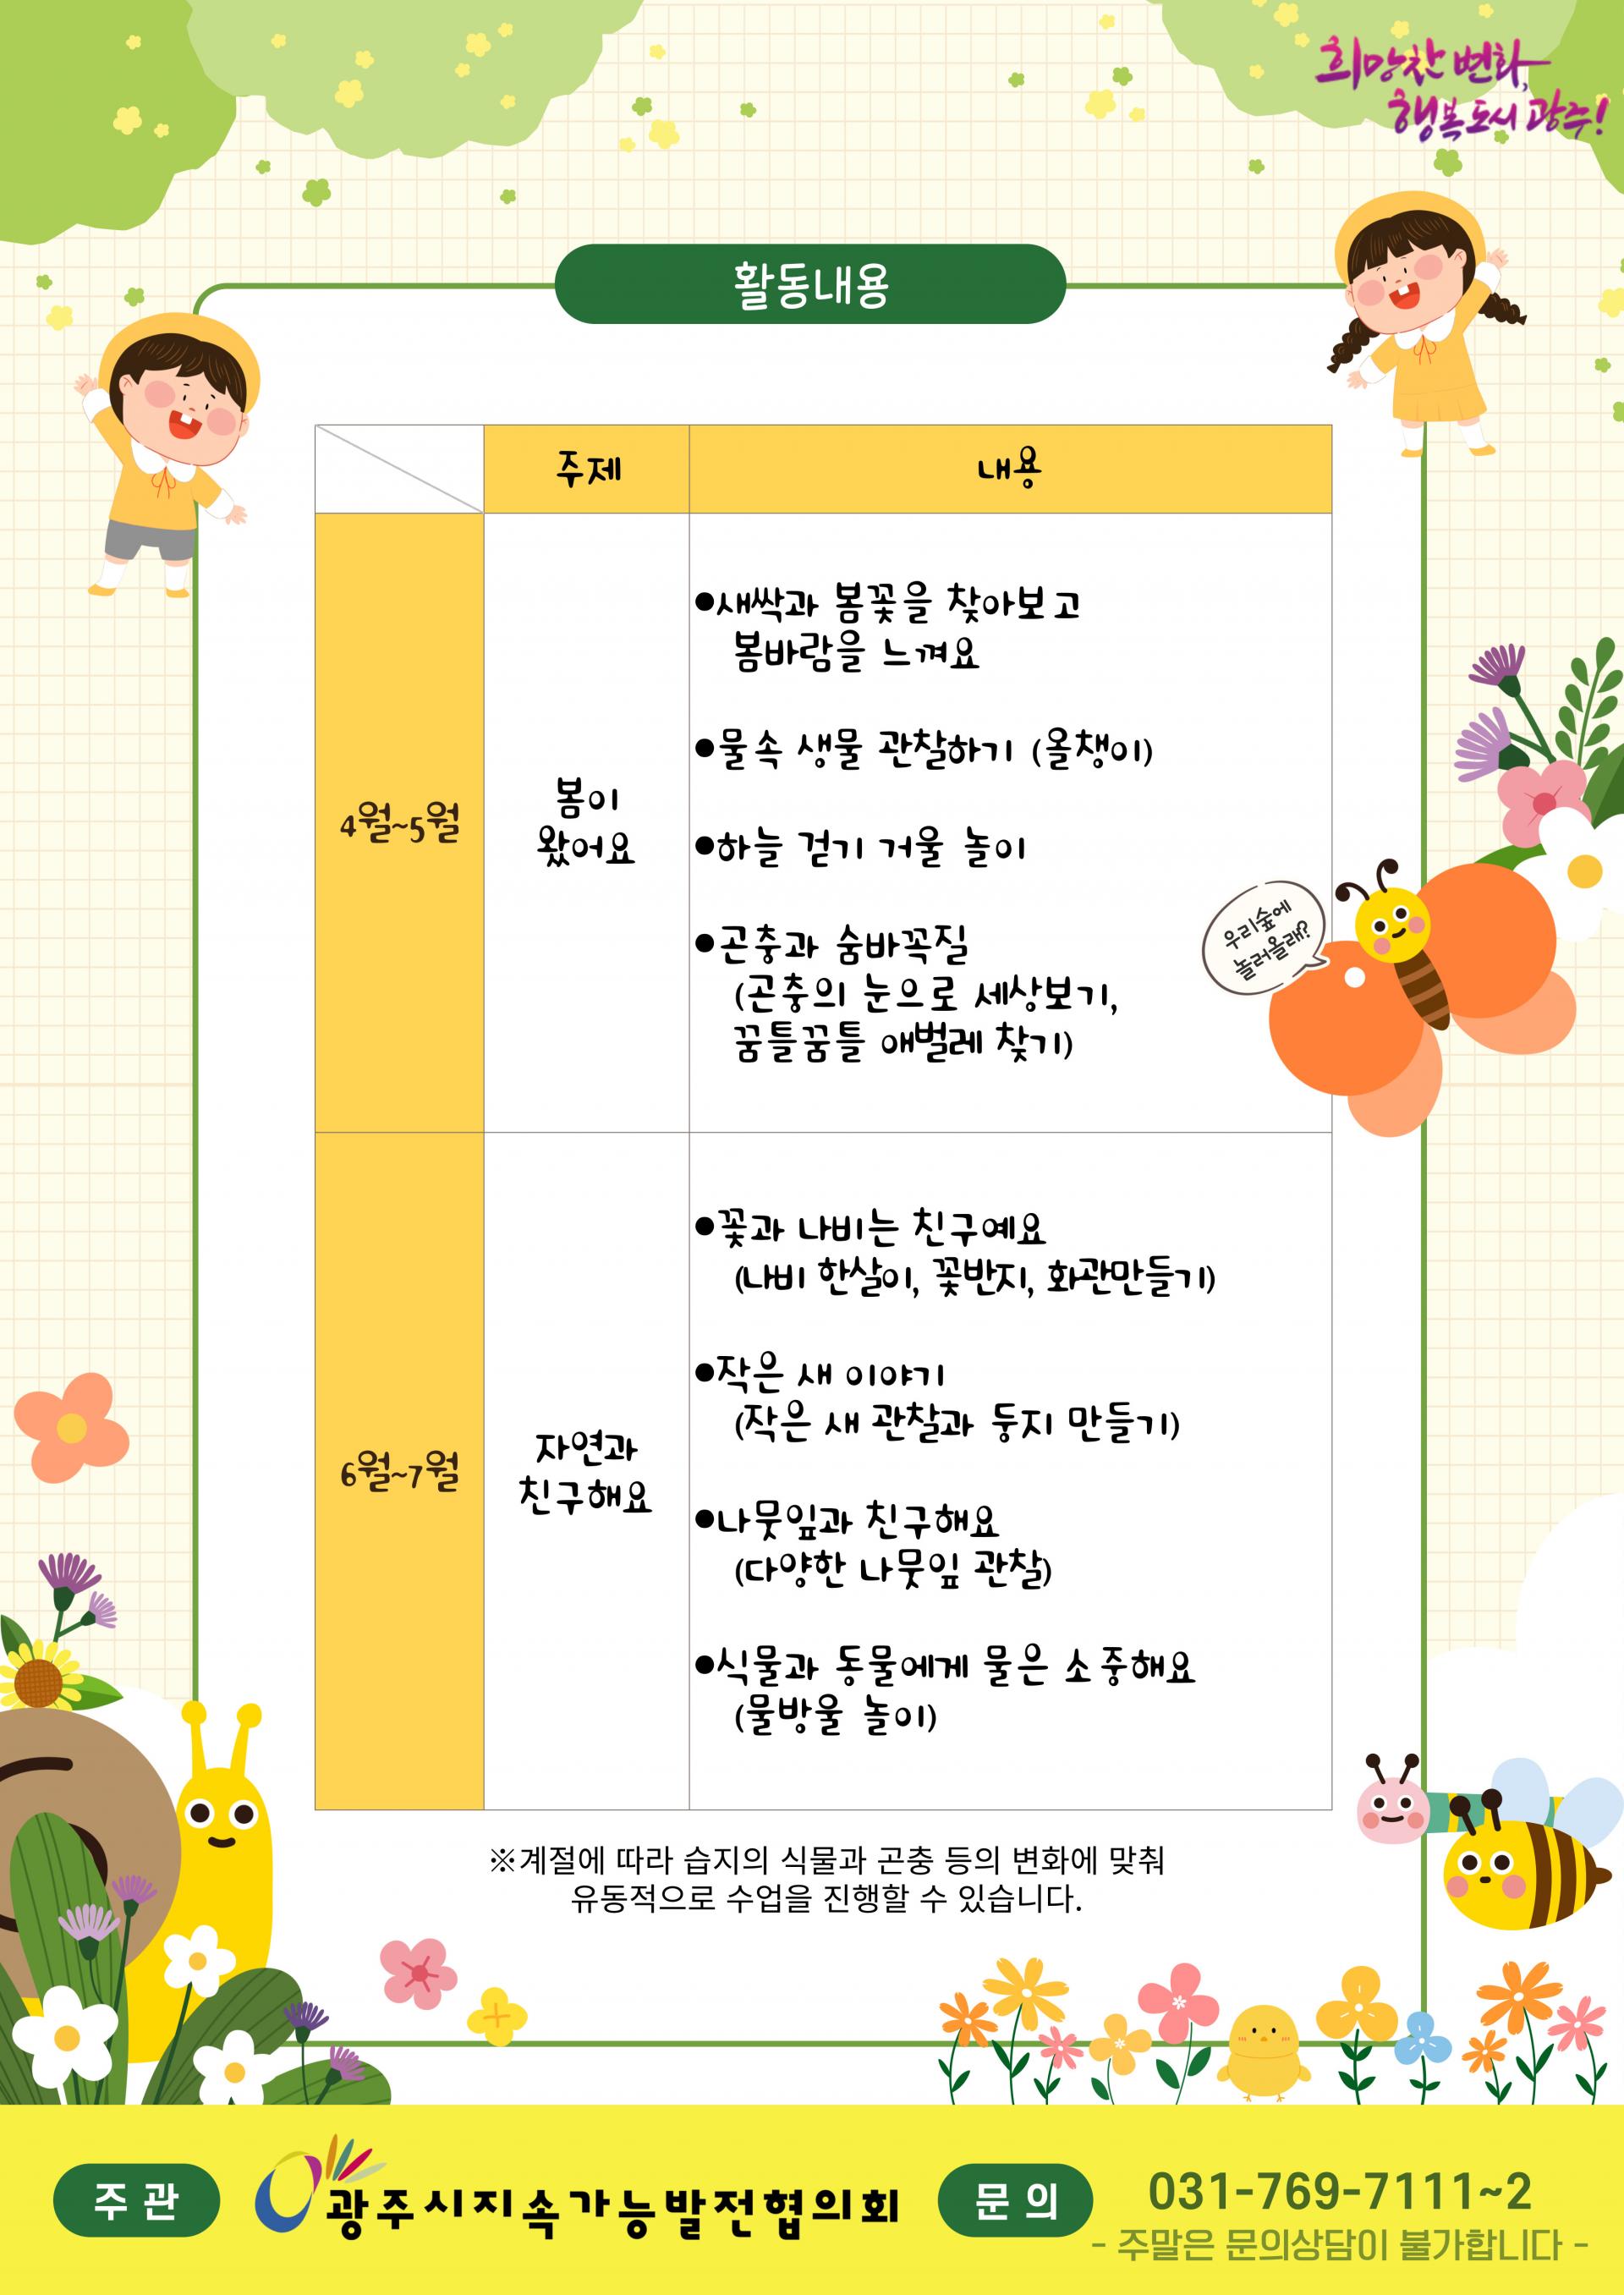 희망찬 변화,
행복도시 광주!
활동내용
주제
내용
4월~5월
봄이
왔어요
●새싹과 봄꽃을 찾아보고
봄바람을 느껴요
●물속 생물 관찰하기 (올챙이)
●하늘 걷기 거울 놀이
●곤충과 숨바꼭질
(곤충의 눈으로 세상보기,
꿈틀꿈틀 애벌레 찾기)
우리숲에
놀러올래?
6월~7월
자연과
친구해요
●꽃과 나비는 친구예요
(나비 한살이, 꽃반지, 화관만들기)
●작은 새 이야기
(작은 새 관찰과 둥지 만들기)
●나뭇잎과 친구해요
(다양한 나뭇잎 관찰)
●식물과 동물에게 물은 소중해요
(물방울 놀이)
※계절에 따라 습지의 식물과 곤충 등의 변화에 맞춰
유동적으로 수업을 진행할 수 있습니다.
주관
광주시지속가능발전협의회
문의
031-769-7111~2
- 주말은 문의상담이 불가합니다 -